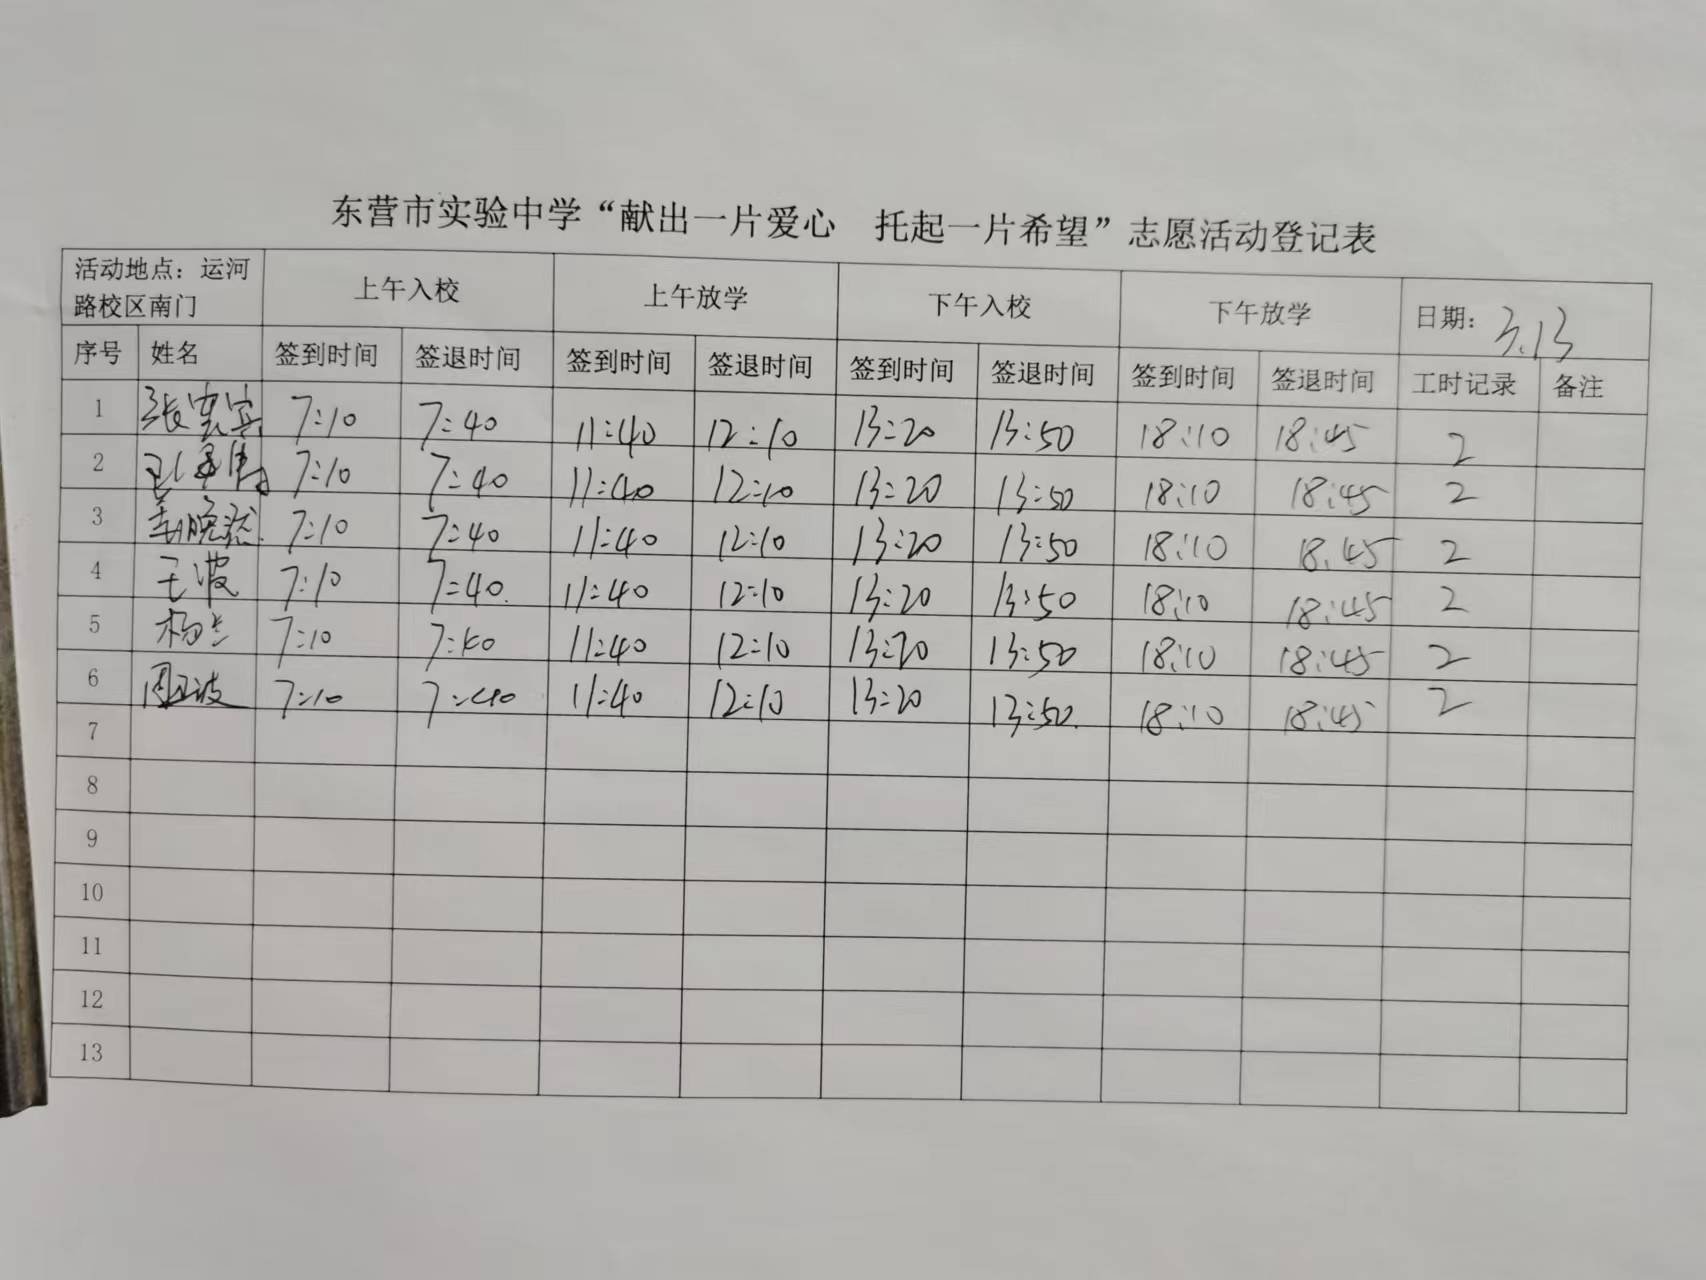 东营市实验中学“献出一片爱心 托起一片希望”志愿活动登记表
活动地点：运河路校区南门 上午入校 上午放学 下午入校 下午放学 日期：3.13
序号 姓名 签到时间 签退时间 签到时间 签退时间 签到时间 签退时间 签到时间 签退时间 工时记录 备注
1 张 7:10 7:40 11:40 12:10 13:20 13:50 18:10 18:45 2
2 7:10 7:40 11:40 12:10 13:20 13:50 18:10 18:45 2
3 姜晓 7:10 7:40 11:40 12:10 13:20 13:50 18:10 18:45 2
4 王波 7:10 7:40 11:40 12:10 13:20 13:50 18:10 18:45 2
5 杨兰 7:10 7:40 11:40 12:10 13:20 13:50 18:10 18:45 2
6 周卫波 7:10 7:40 11:40 12:10 13:20 13:50 18:10 18:45 2
7
8
9
10
11
12
13